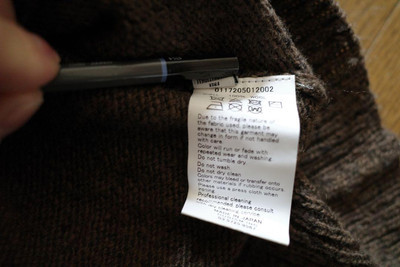 0117205012002
Due to the fragile nature of
the fabric used, please be
aware that this garment may
change in form if not handled
with care.
Color will run or fade with
repeated wear and washing
Do not tumble dry.
Do not wash
Do not dry clean.
Colors may bleed or transfer onto
other materials if rubbing occurs
Please use a press cloth when
Professional cleaning
please consult
MADE IN JAPAN